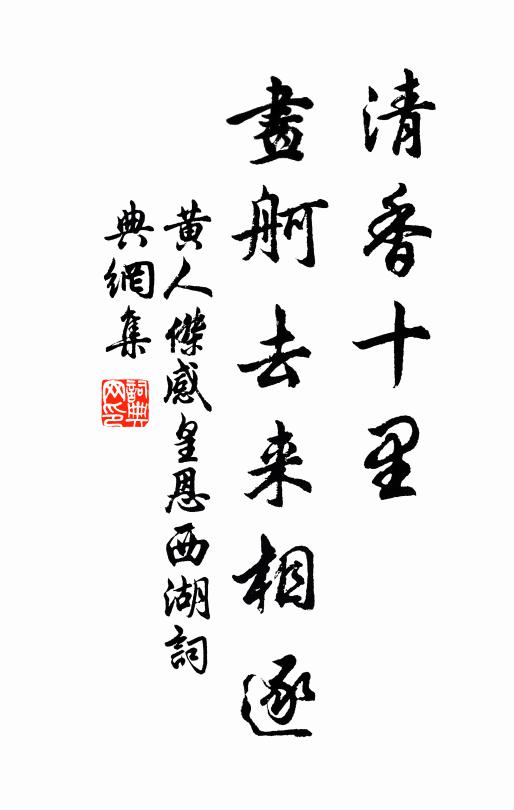 清香十里
畫舸去来相逐
黄人傑感皇恩西湖詞
典網集
詞典
网印